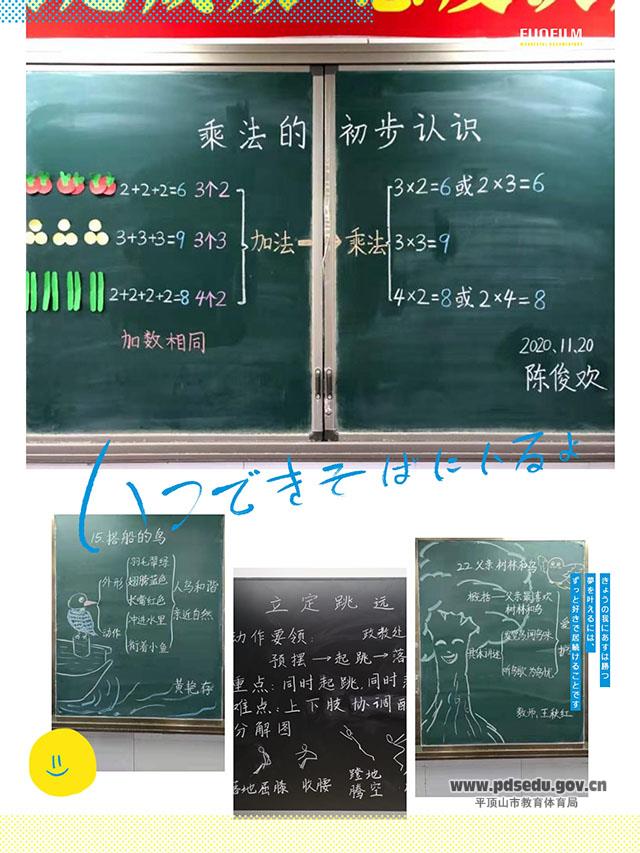 FUOFILM
乘法的初步认识
2+2+2=6 3个2
3+3+3=9 3个3
2+2+2+2=8 4个2
加数相同
加法→乘法
3×2=6或2×3=6
3×3=9
4×2=8或2×4=8
2020.11.20
陈俊欢
いつでもきそばにいるよ
15.搭船的鸟
外形
羽毛翠绿
翅膀蓝色
长嘴红色
动作
冲进水里
衔着小鱼
人鸟和谐
亲近自然
黄艳存
立定跳远
动作要领:
预摆→起跳→落
重点:同时起跳,同时
难点:上下肢协调
分解图
落地屈膝 收腰 蹬地
腾空
22.父亲树林和鸟
概括——父亲最喜欢
树林和鸟
具体讲述
爱护
教师:王秋红
きょうの我にあすは勝つ
夢を叶えるには、
ずっと好きで居続けることです
www.pdsedu.gov.cn
平顶山市教育体育局